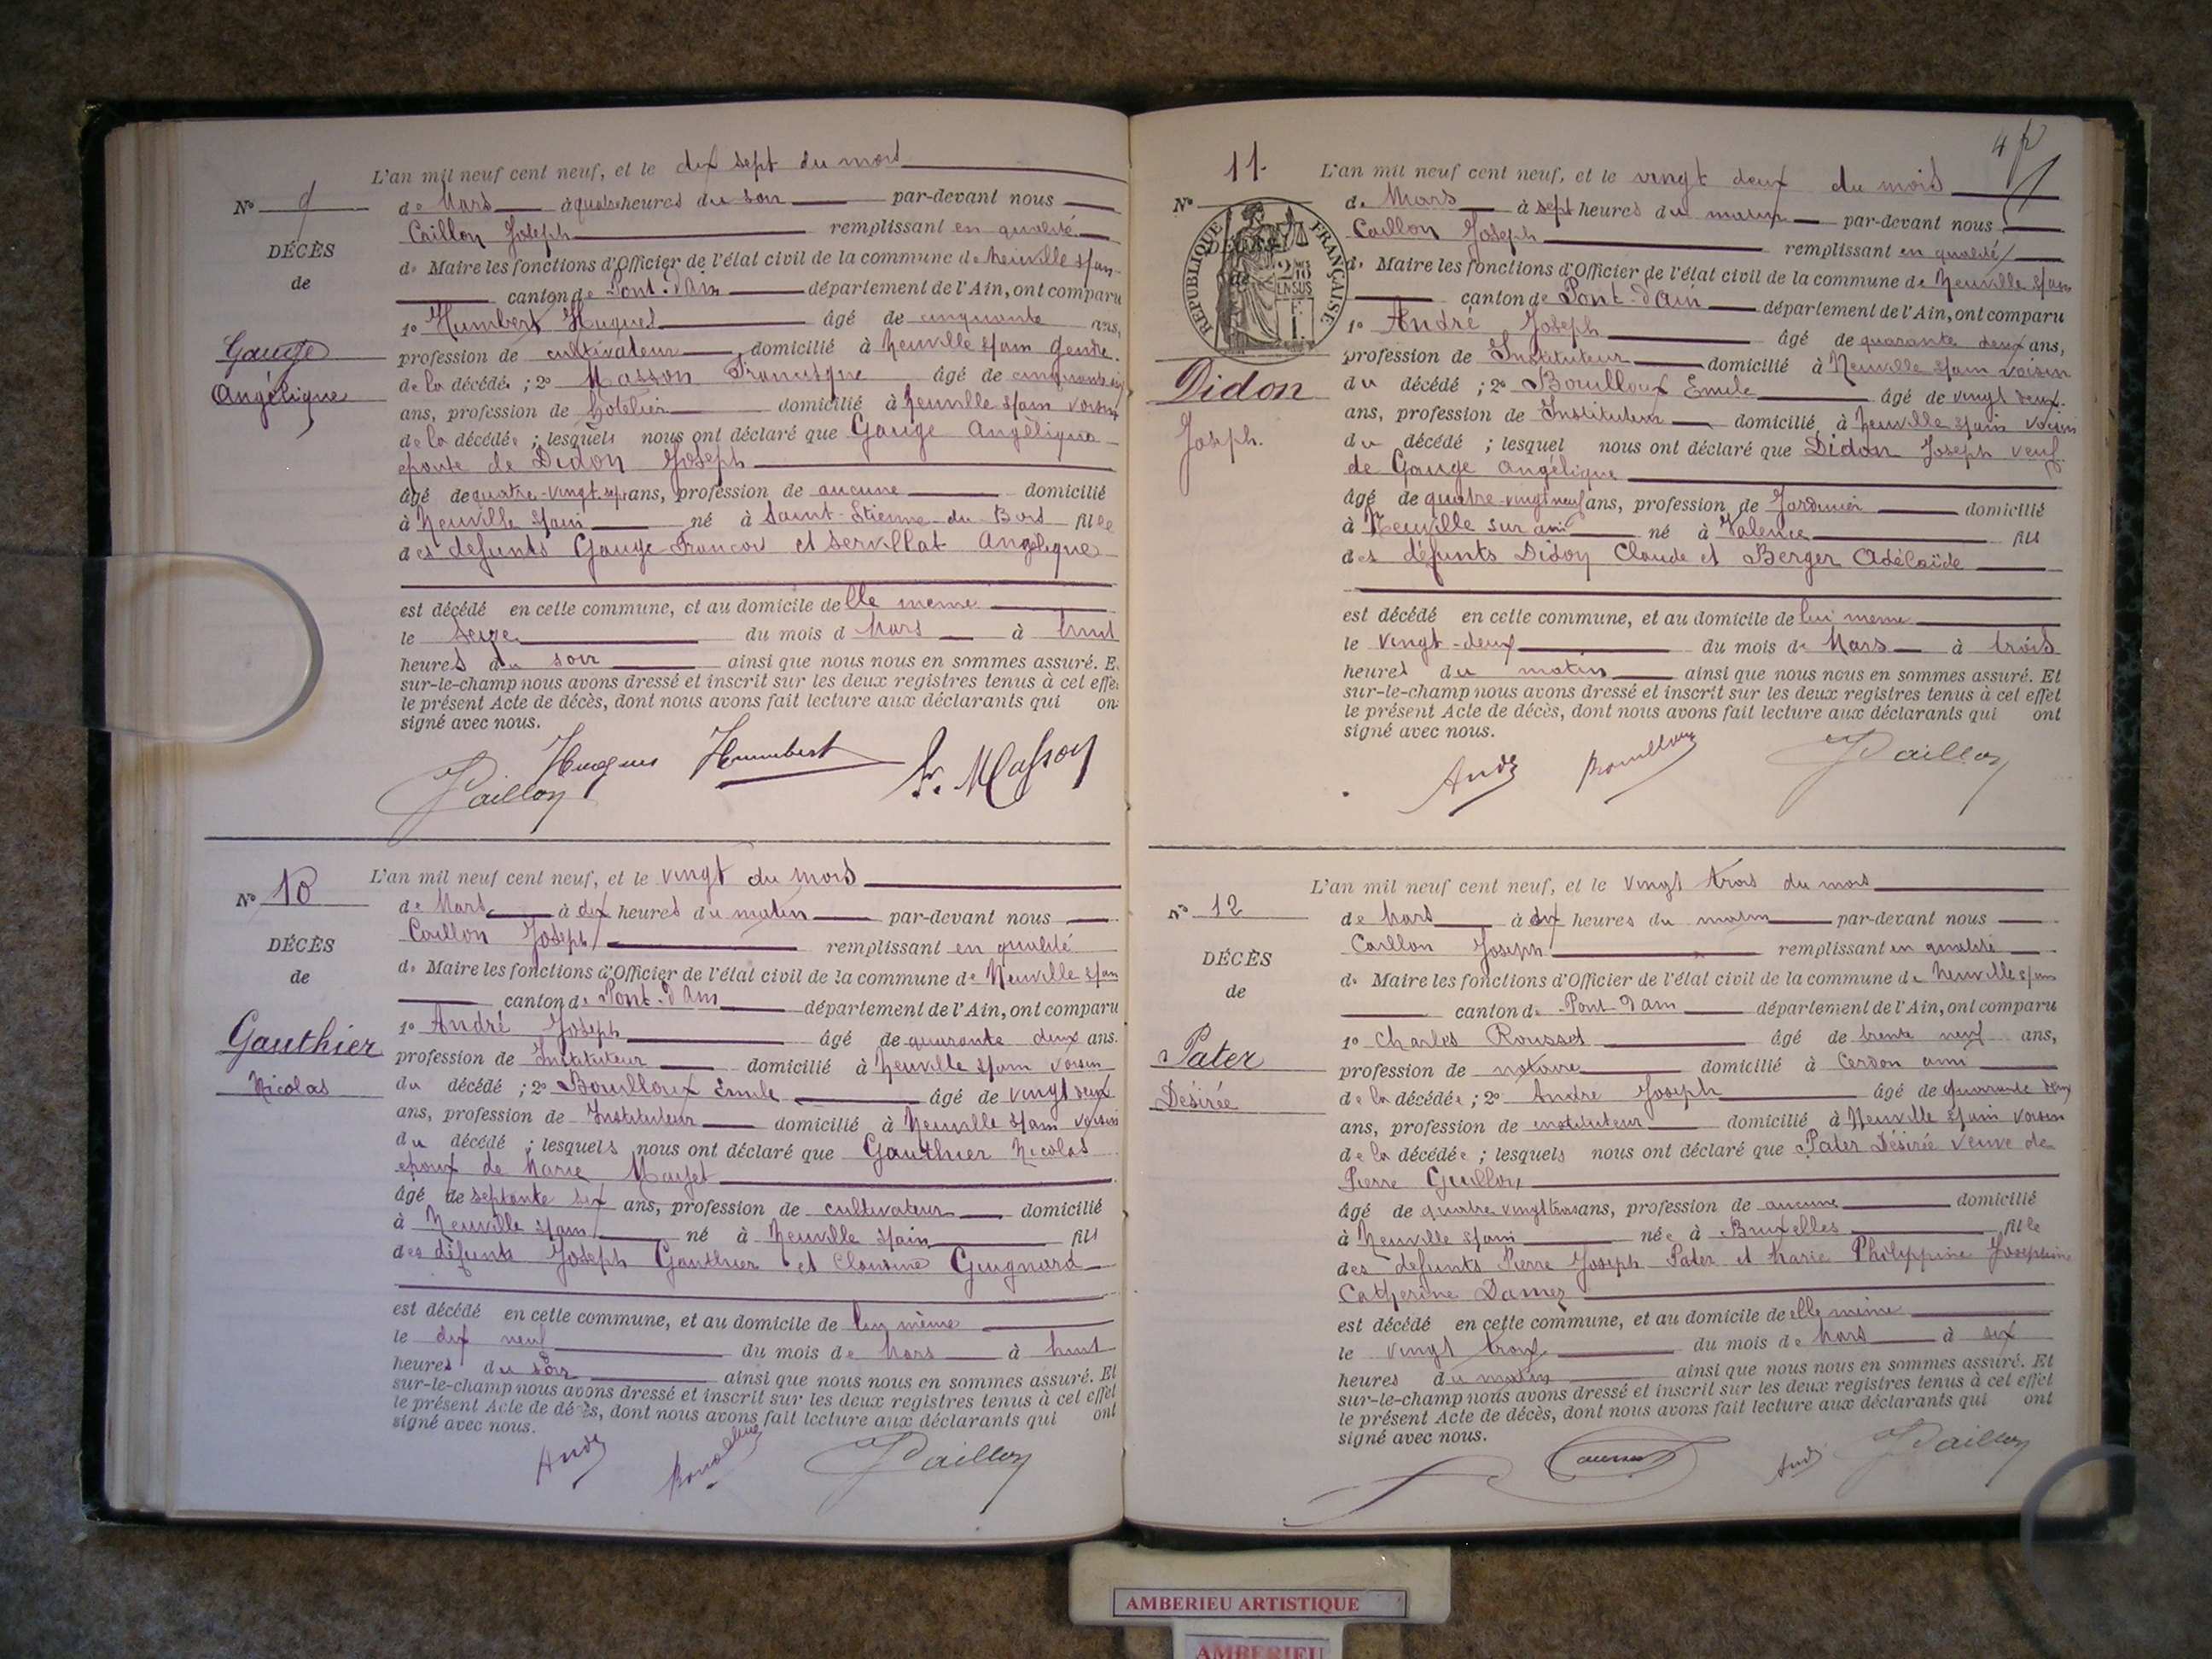 L'an mil neuf cent neuf, et le dix sept du mois
N° 9
de Mars à quatre heures du soir par-devant nous
Caillon Joseph remplissant en qualité
DÉCÈS
de Maire les fonctions d'Officier de l'état civil de la commune de Neuville s/ain
de
canton de Pont-d'ain département de l'Ain, ont comparu
1° Humbert Hugues âgé de cinquante ans,
Gauge
profession de cultivateur domicilié à Neuville s/ain gendre
Angélique
de la décédée ; 2° Masson Francisque âgé de cinquante
ans, profession de hotelier domicilié à Neuville s/ain voisin
de la décédée ; lesquels nous ont déclaré que Gauge Angèlique
epouse de Didon Joseph
âgé de quatre-vingt-sept ans, profession de aucune domicilié
à Neuville s/ain né à Saint-Etienne-du-Bois fille
des defunts Gauge Francois et Servillat Angèlique
est décédé en cette commune, et au domicile de elle meme
le seize du mois d Mars à huit
heures du soir ainsi que nous nous en sommes assuré. E
sur-le-champ nous avons dressé et inscrit sur les deux registres tenus à cet effe
le présent Acte de décès, dont nous avons fait lecture aux déclarants qui on
signé avec nous.
Hugues Humbert F. Masson
J Caillon
L'an mil neuf cent neuf, et le vingt du mois
N° 10
de Mars à dix heures du matin par-devant nous
Caillon Joseph remplissant en qualité
DÉCÈS
de Maire les fonctions d'Officier de l'état civil de la commune de Neuville s/ain
de
canton de Pont-d'ain département de l'Ain, ont comparu
1° André Joseph âgé de quarante deux ans.
Gauthier
profession de Instituteur domicilié à Neuville s/ain voisin
Nicolas
du décédé ; 2° Bouilloux Emile âgé de vingt deux
ans, profession de Instituteur domicilié à Neuville s/ain voisin
du décédé ; lesquels nous ont déclaré que Gauthier Nicolas
epoux de Marie
âgé de septante six ans, profession de cultivateur domicilié
à Neuville s/ain né à Neuville s/ain fils
des défunts Joseph Gauthier et Claudine Guignard
est décédé en cette commune, et au domicile de lui même
le dix neuf du mois de Mars à huit
heures du soir ainsi que nous nous en sommes assuré. Et
sur-le-champ nous avons dressé et inscrit sur les deux registres tenus à cet effet
le présent Acte de décès, dont nous avons fait lecture aux déclarants qui ont
signé avec nous.
André Bouilloux J Caillon
4
11.
L'an mil neuf cent neuf, et le vingt deux du mois
N°
de Mars à sept heures du matin par-devant nous
RÉPUBLIQUE FRANÇAISE
Caillon Joseph remplissant en qualité
de Maire les fonctions d'Officier de l'état civil de la commune de Neuville s/ain
canton de Pont-d'Ain département de l'Ain, ont comparu
1° André Joseph âgé de quarante deux ans,
profession de Instituteur domicilié à Neuville s/ain voisin
Didon
du décédé ; 2° Bouilloux Emile âgé de vingt deux
Joseph.
ans, profession de Instituteur domicilié à Neuville s/ain voisin
du décédé ; lesquel nous ont déclaré que Didon Joseph veuf
de Gauge Angélique
âgé de quatre-vingt neuf ans, profession de Jardinier domicilié
à Neuville sur ain né à Valence fils
des défunts Didon Claude et Berger Adélaïde
est décédé en cette commune, et au domicile de lui meme
le vingt-deux du mois de Mars à trois
heures du matin ainsi que nous nous en sommes assuré. Et
sur-le-champ nous avons dressé et inscrit sur les deux registres tenus à cet effet
le présent Acte de décès, dont nous avons fait lecture aux déclarants qui ont
signé avec nous.
André Bouilloux J Caillon
L'an mil neuf cent neuf, et le vingt trois du mois
N° 12
de Mars à dix heures du matin par-devant nous
Caillon Joseph remplissant en qualité
DÉCÈS
de Maire les fonctions d'Officier de l'état civil de la commune de Neuville s/ain
de
canton de Pont-d'ain département de l'Ain, ont comparu
1° Charles Rousset âgé de trente neuf ans,
Pater
profession de notaire domicilié à Cerdon ami
Désirée
de la décédée ; 2° André Joseph âgé de quarante deux
ans, profession de instituteur domicilié à Neuville s/ain voisin
de la décédée ; lesquels nous ont déclaré que Pater Désirée veuve de
Pierre Guillon
âgé de quatre vingt trois ans, profession de aucune domicilié
à Neuville s/ain née à Bruxelles fille
des defunts Pierre Joseph Pater et Marie Philippine Josephine
Catherine Damez
est décédé en cette commune, et au domicile de elle même
le vingt trois du mois de Mars à six
heures du matin ainsi que nous nous en sommes assuré. Et
sur-le-champ nous avons dressé et inscrit sur les deux registres tenus à cet effet
le présent Acte de décès, dont nous avons fait lecture aux déclarants qui ont
signé avec nous.
André J Caillon
AMBERIEU ARTISTIQUE
AMBERIEU